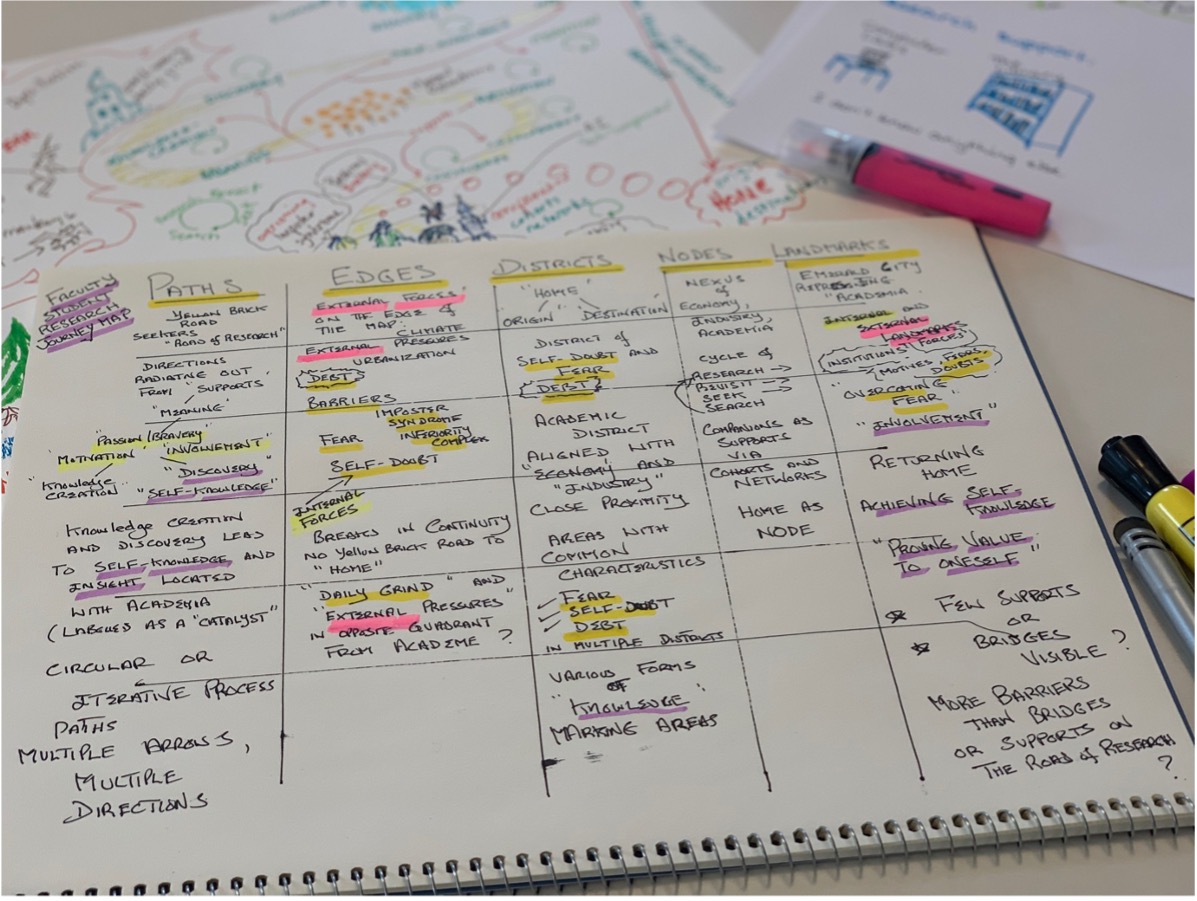 Research Support
computer
I don't know anything else
Search
Home
destination
FACULTY
STUDENT
RESEARCH
JOURNEY MAP
PATHS
YELLOW BRICK
ROAD
SEEKERS "ROAD OF RESEARCH"
DIRECTIONS
RADIATING OUT
FROM "SUPPORTS"
"MEANING"
"PASSION/BRAVERY"
"MOTIVATION" "INVOLVEMENT"
"DISCOVERY"
"KNOWLEDGE
CREATION" "SELF-KNOWLEDGE"
KNOWLEDGE CREATION
AND DISCOVERY LEAD
TO SELF-KNOWLEDGE AND
INSIGHT LOCATED
WITH ACADEMIA
(LABELLED AS A "CATALYST"
CIRCULAR OR
ITERATIVE PROCESS
PATHS
MULTIPLE ARROWS,
MULTIPLE
DIRECTIONS
EDGES
EXTERNAL FORCES"
ON THE EDGE OF
THE MAP: CLIMATE
EXTERNAL PRESSURES
URBANIZATION
DEBT
BARRIERS
IMPOSTER
SYNDROME
FEAR INFERIORITY
COMPLEX
SELF-DOUBT
INTERNAL
FORCES
BREAKS IN CONTINUITY
NO YELLOW BRICK ROAD TO
"HOME"
"DAILY GRIND" AND
"EXTERNAL PRESSURES"
IN OPPOSITE QUADRANT
FROM ACADEME ?
DISTRICTS
"HOME"
ORIGIN DESTINATION
DISTRICT OF
SELF-DOUBT AND
FEAR
DEBT
ACADEMIC
DISTRICT
ALIGNED WITH
"ECONOMY" AND
"INDUSTRY"
CLOSE PROXIMITY
AREAS WITH
COMMON
CHARACTERISTICS
FEAR
SELF-DOUBT
DEBT
IN MULTIPLE DISTRICTS
VARIOUS FORMS
OF
"KNOWLEDGE"
MARKING AREAS
NODES
NEXUS OF
ECONOMY,
INDUSTRY,
ACADEMIA
CYCLE OF
RESEARCH →
REVISIT →
SEEK →
SEARCH
COMPANIONS AS
SUPPORTS
VIA
COHORTS AND
NETWORKS
HOME AS
NODE
LANDMARKS
EMERALD CITY
REPRESSING
"ACADEMIA"
INTERNAL OR
EXTERNAL
LANDMARKS
INSTITUTIONS FORCES
MOTIVES, FEARS,
DOUBTS
"OVERCOMING
FEAR"
"INVOLVEMENT"
RETURNING
HOME
ACHIEVING SELF-
KNOWLEDGE
"PROVING VALUE
TO ONESELF"
* FEW SUPPORTS
OR
* BRIDGES
VISIBLE ?
MORE BARRIERS
THAN BRIDGES
OR SUPPORTS ON
THE ROAD OF RESEARCH
?